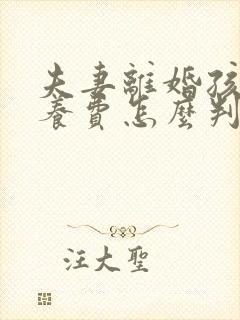 夫妻離婚孩
養費怎麼判
汪大聖